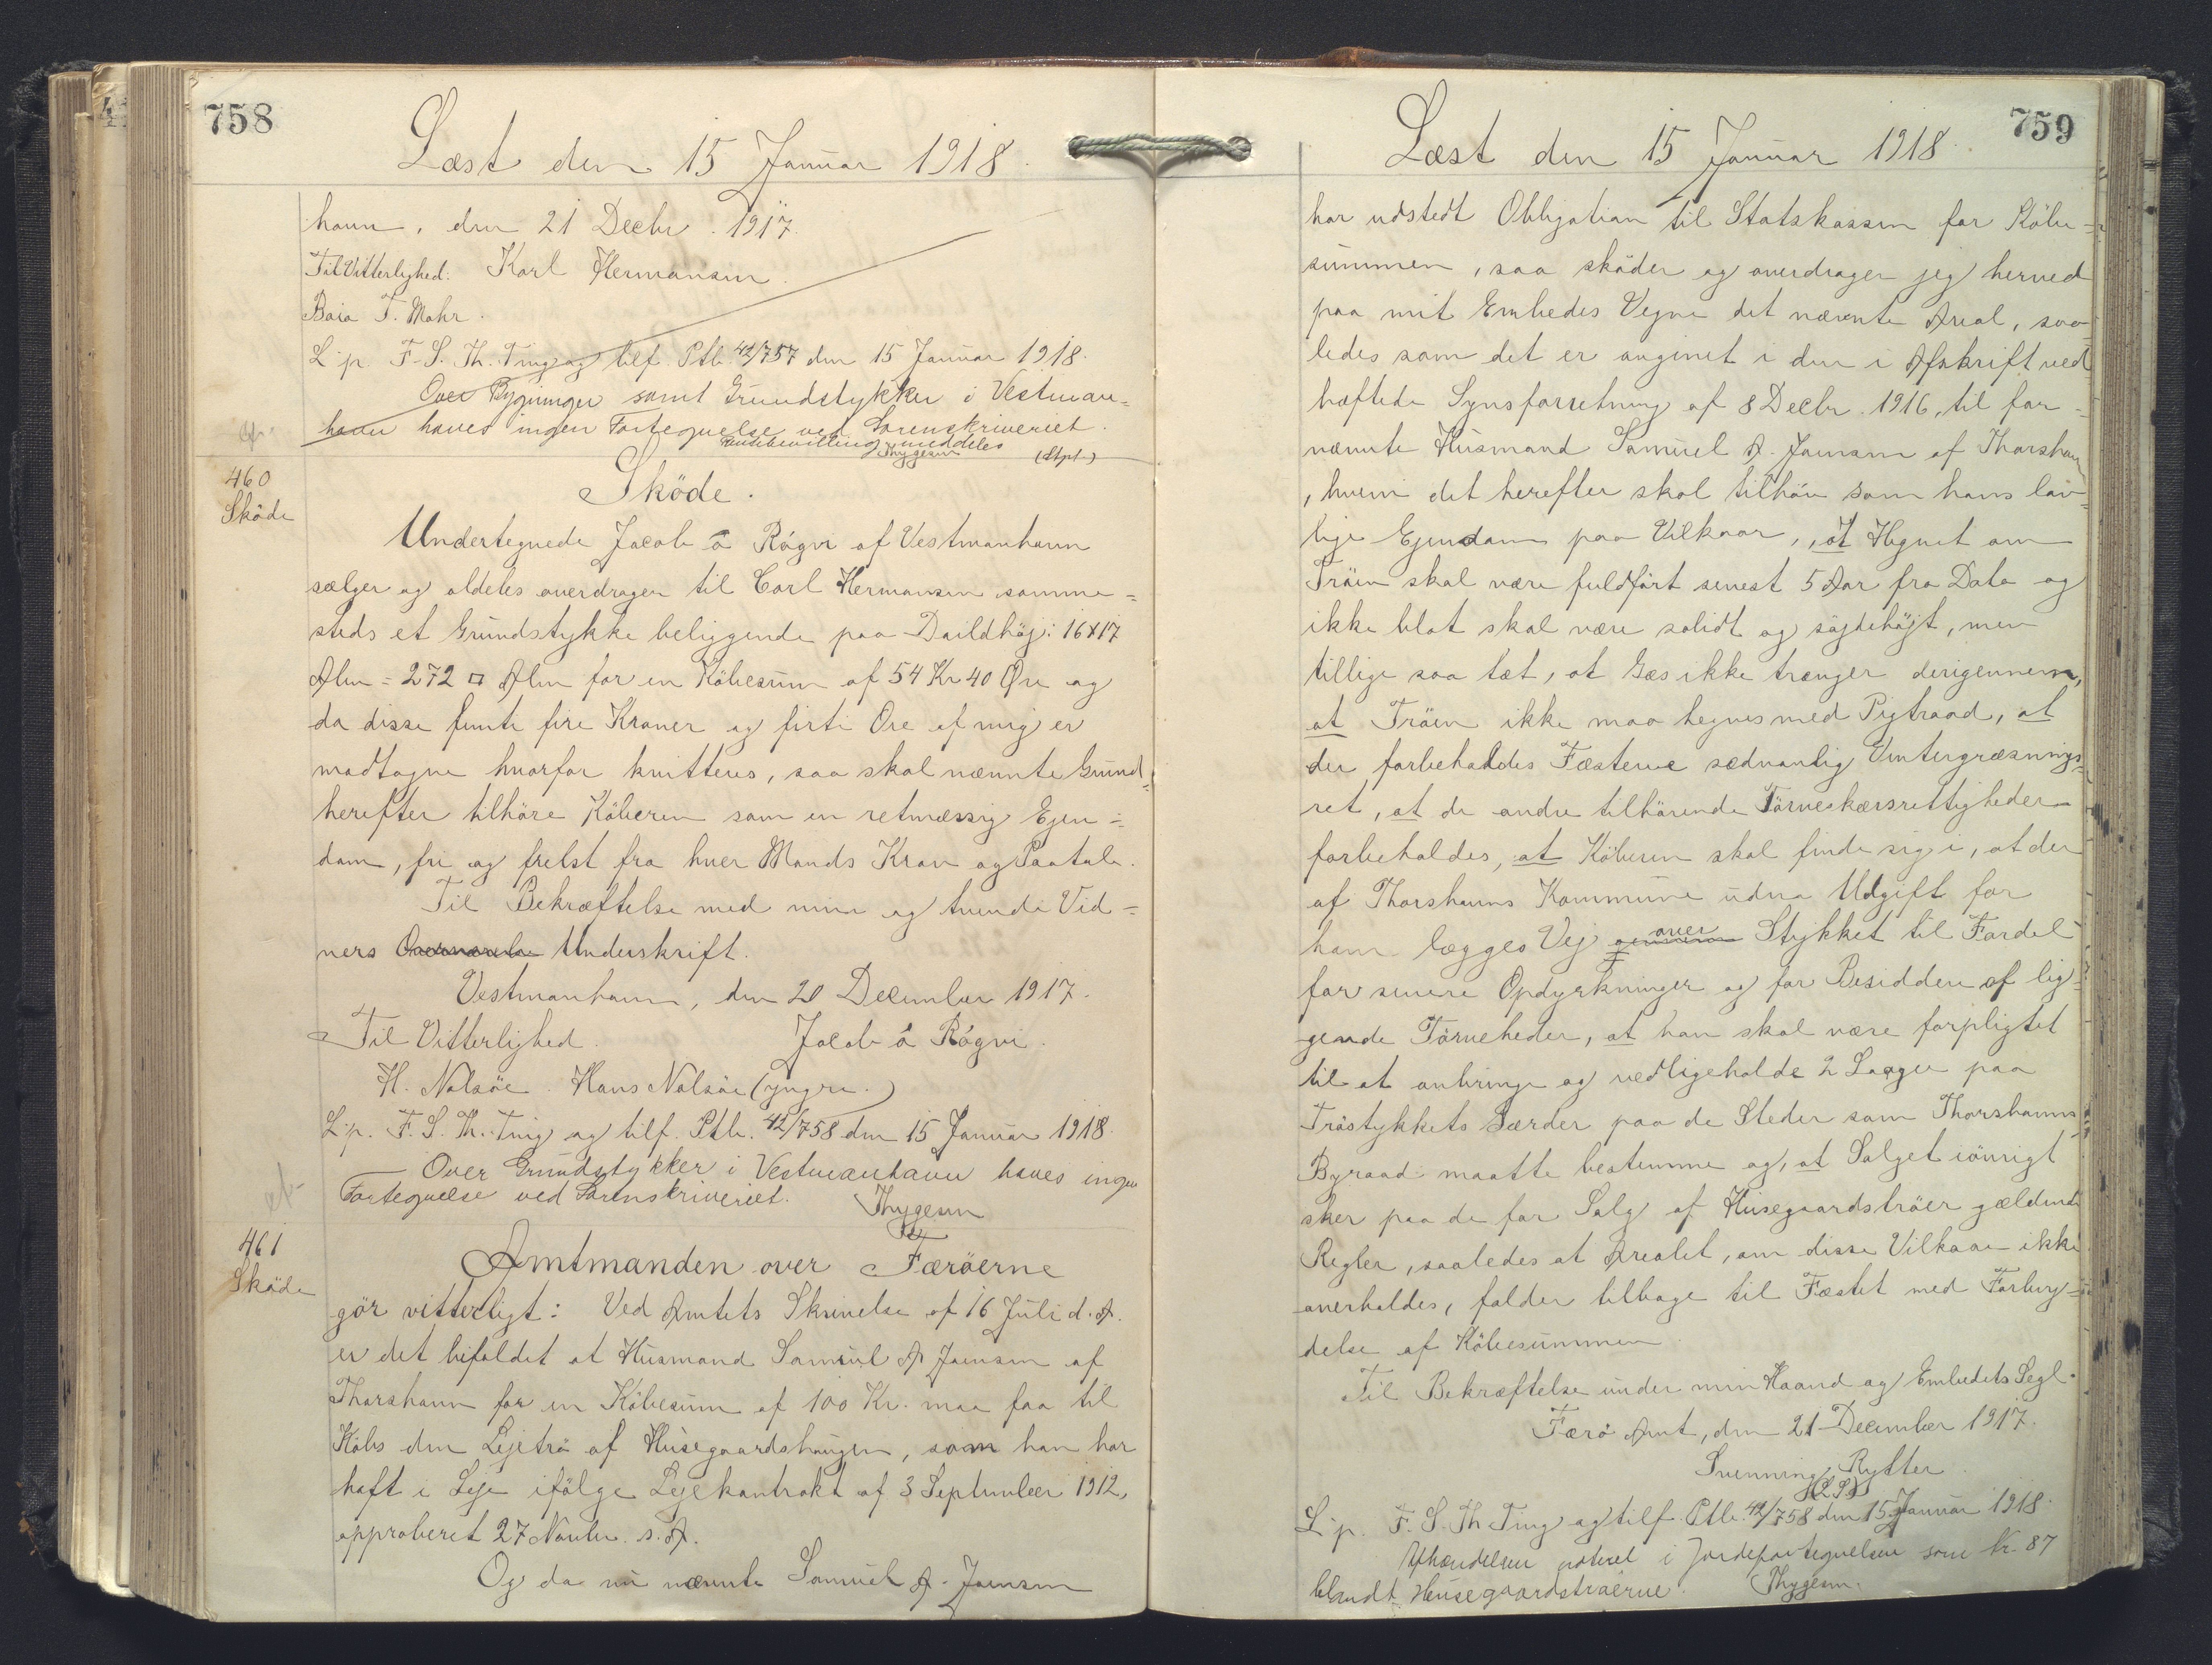 758
Læst den 15 Januar 1918.
havn, den 21 Decbr. 1917.
Til Vitterlighed: Karl Hermansen.
Baia T. Mohr.
L. p. F. S. Th. Ting og tilf. Ptb. 42/757 den 15 Januar 1918.
Over Bygninger samt Grundstykker i Vestman=
havn haves ingen Fortegnelse ved Sorenskriveriet.
meddeles
Thygesen (Stpl.)
460
Sköde
Sköde.
Undertegnede Jacob á Rógvi af Vestmanhavn
sælger og aldeles overdrager til Carl Hermansen samme=
steds et Grundstykke beliggende paa Daildhöj: 16x17
Alen = 272 □ Alen for en Köbesum af 54 Kr 40 Øre og
da disse femti fire Kroner og firti Ore af mig er
modtagne hvorfor kvitteres, saa skal nævnte Grund
herefter tilhöre Köberen som en retmæssig Ejen=
dom, fri og frelst fra hver Mands Krav og Paatale.
Til Bekræftelse med min og tvende Vid=
ners Underskrift.
Vestmanhavn, den 20 December 1917.
Til Vitterlighed. Jacob á Rógvi.
H. Nolsöe. Hans Nolsöe (yngre.)
L. p. F. S. Th. Ting og tilf. Ptb. 42/758 den 15 Januar 1918.
Over Grundstykker i Vestmanhavn haves ingen
Fortegnelse ved Sorenskriveriet. Thygesen
461
Sköde
Amtmanden over Færöerne
gör vitterligt: Ved Amtets Skrivelse af 16 Juli d. A.
er det bifaldet at Husmand Samuel A Joensen af
Thorshavn for en Köbesum af 100 Kr. maa faa til
Köbs den Lejetrö af Husegaardshaugen, som han har
haft i Leje ifölge Lejekontrakt af 3 September 1912,
approberet 27 Novbr. s. A.
Og da nu nævnte Samuel A. Joensen
759
Læst den 15 Januar 1918.
har udstedt Obligation til Statskassen for Köbe=
summen, saa sköder og overdrager jeg herved
paa mit Embedes Vegne det nævnte Areal, saa
ledes som det er angivet i den i Afskrift ved
hæftede Synsforretning af 8 Decbr. 1916, til for=
nævnte Husmand Samuel A. Joensen af Thorshavn
, hvem det herefter skal tilhöre som hans lov
lige Ejendom paa Vilkaar, at Hegnet om
Tröen skal være fuldfört senest 5 Aar fra Dato og
ikke blot skal være solidt og söjdehöjt, men
tillige saa tæt, at Gæs ikke trænger derigennem,
at Tröen ikke maa hegnes med Pigtraad, at
der forbeholdes Fæsterne sædvanlig Vintergræsnings=
ret, at de andre tilhörende Törveskærsrettigheder
forbeholdes, at Köberen skal finde sig i, at der
af Thorshavns Kommune uden Udgift for
ham lægges Vej gennem over Stykket til Fordel
for senere Opdyrkninger og for Besiddere af lig=
gende Törveheder, at han skal være forpligtet
til at anbringe og vedligeholde 2 Laager paa
Tröstykkets Gærder paa de Steder som Thorshavns
Byraad maatte bestemme og, at Salget iövrigt
sker paa de for Salg af Husegaardströer gældende
Regler, saaledes at Arealet, om disse Vilkaar ikke
overholdes, falder tilbage til Fæstet med Forbry=
delse af Köbesummen
Til Bekræftelse under min Haand og Embedets Segl.
Færö Amt, den 21 December 1917.
Svenning Rytter
(LS)
L. p. F. S. Th Ting og tilf. Ptb. 42/758 den 15 Januar 1918.
Afhændelsen noteret i Jordefortegnelsen som Nr. 87
blandt Husegaardströerne. Thygesen.